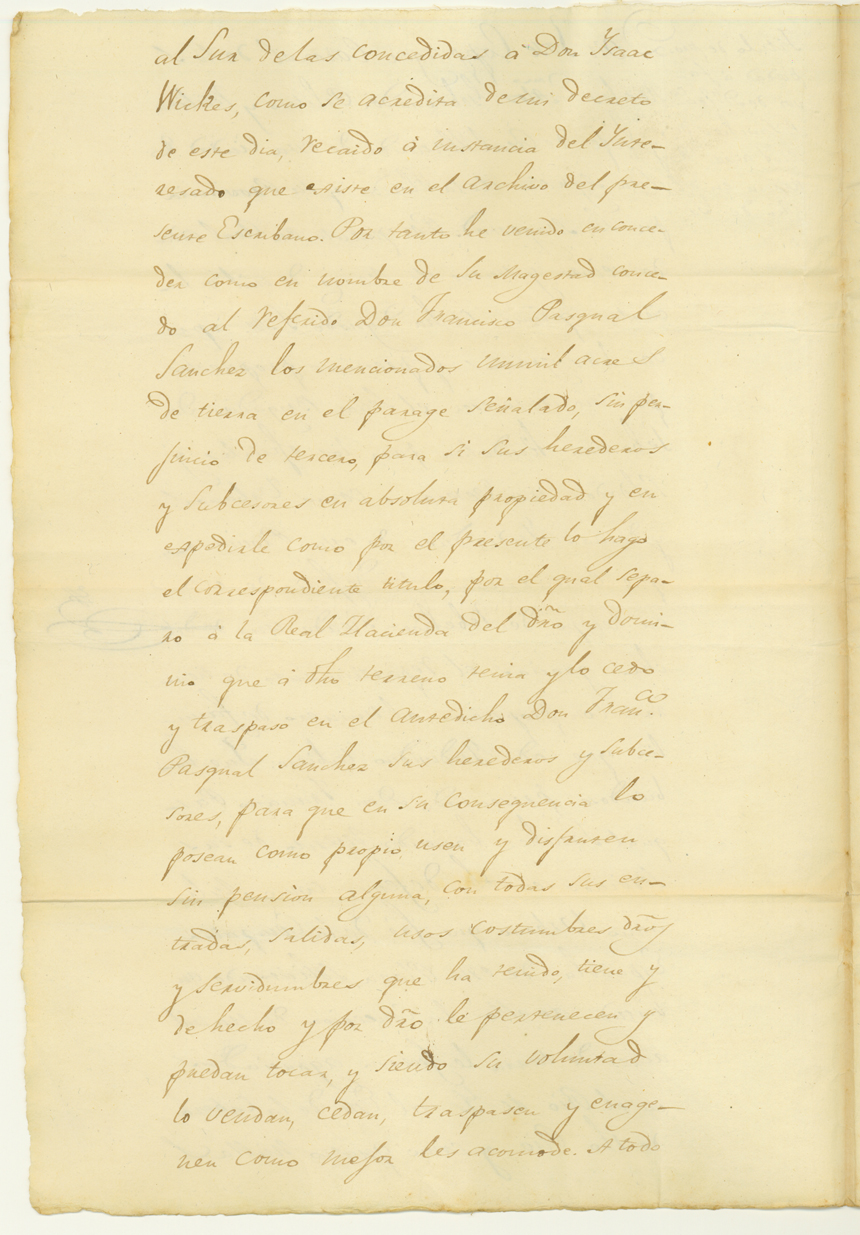 al Sur de las concedidas á Don Ysaac
Wickes, como se acredita de mi decreto
de este dia, recaido á instancia del Ynte-
resado que existe en el Archivo del pre-
sente Escribano. Por tanto he venido en conce-
der como en nombre de Su Magestad conce-
do al referido Don Francisco Pasqual
Sanchez los mencionados unmil acres
de tierra en el parage señalado, sin per-
juicio de tercero, para si sus herederos
y subcesores en absoluta propiedad y en
expedirle como por el presente lo hago
el correspondiente titulo, por el qual sepa-
ro á la Real Hacienda del dr̃o y domi-
nio que á dho terreno tenia y lo cedo
y traspaso en el Antedicho Don Franco.
Pasqual Sanchez sus herederos y subce-
sores, para que en su consequencia lo
posean como propio usen y disfruten
sin pension alguna, con todas sus en-
tradas, salidas, usos costumbres dr̃os
y servidumbres que ha tenido, tiene y
de hecho y por dr̃o le pertenecen y
puedan tocar, y siendo su voluntad
lo vendan, cedan, traspasen y enage-
nen como mejor les acomode. A todo